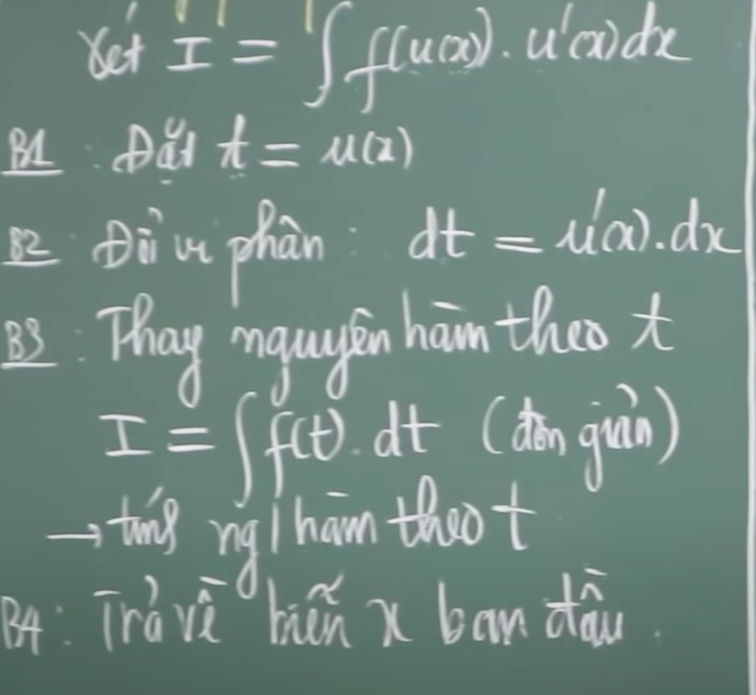 Xét I = ∫ f(u(x)). u'(x)dx
B1: Đặt t = u(x)
B2: Đổi vi phân: dt = u'(x).dx
B3: Thay nguyên hàm theo t
I = ∫ f(t). dt (đơn giản)
→ tính ng| hàm theo t
B4: Trả về biến x ban đầu.